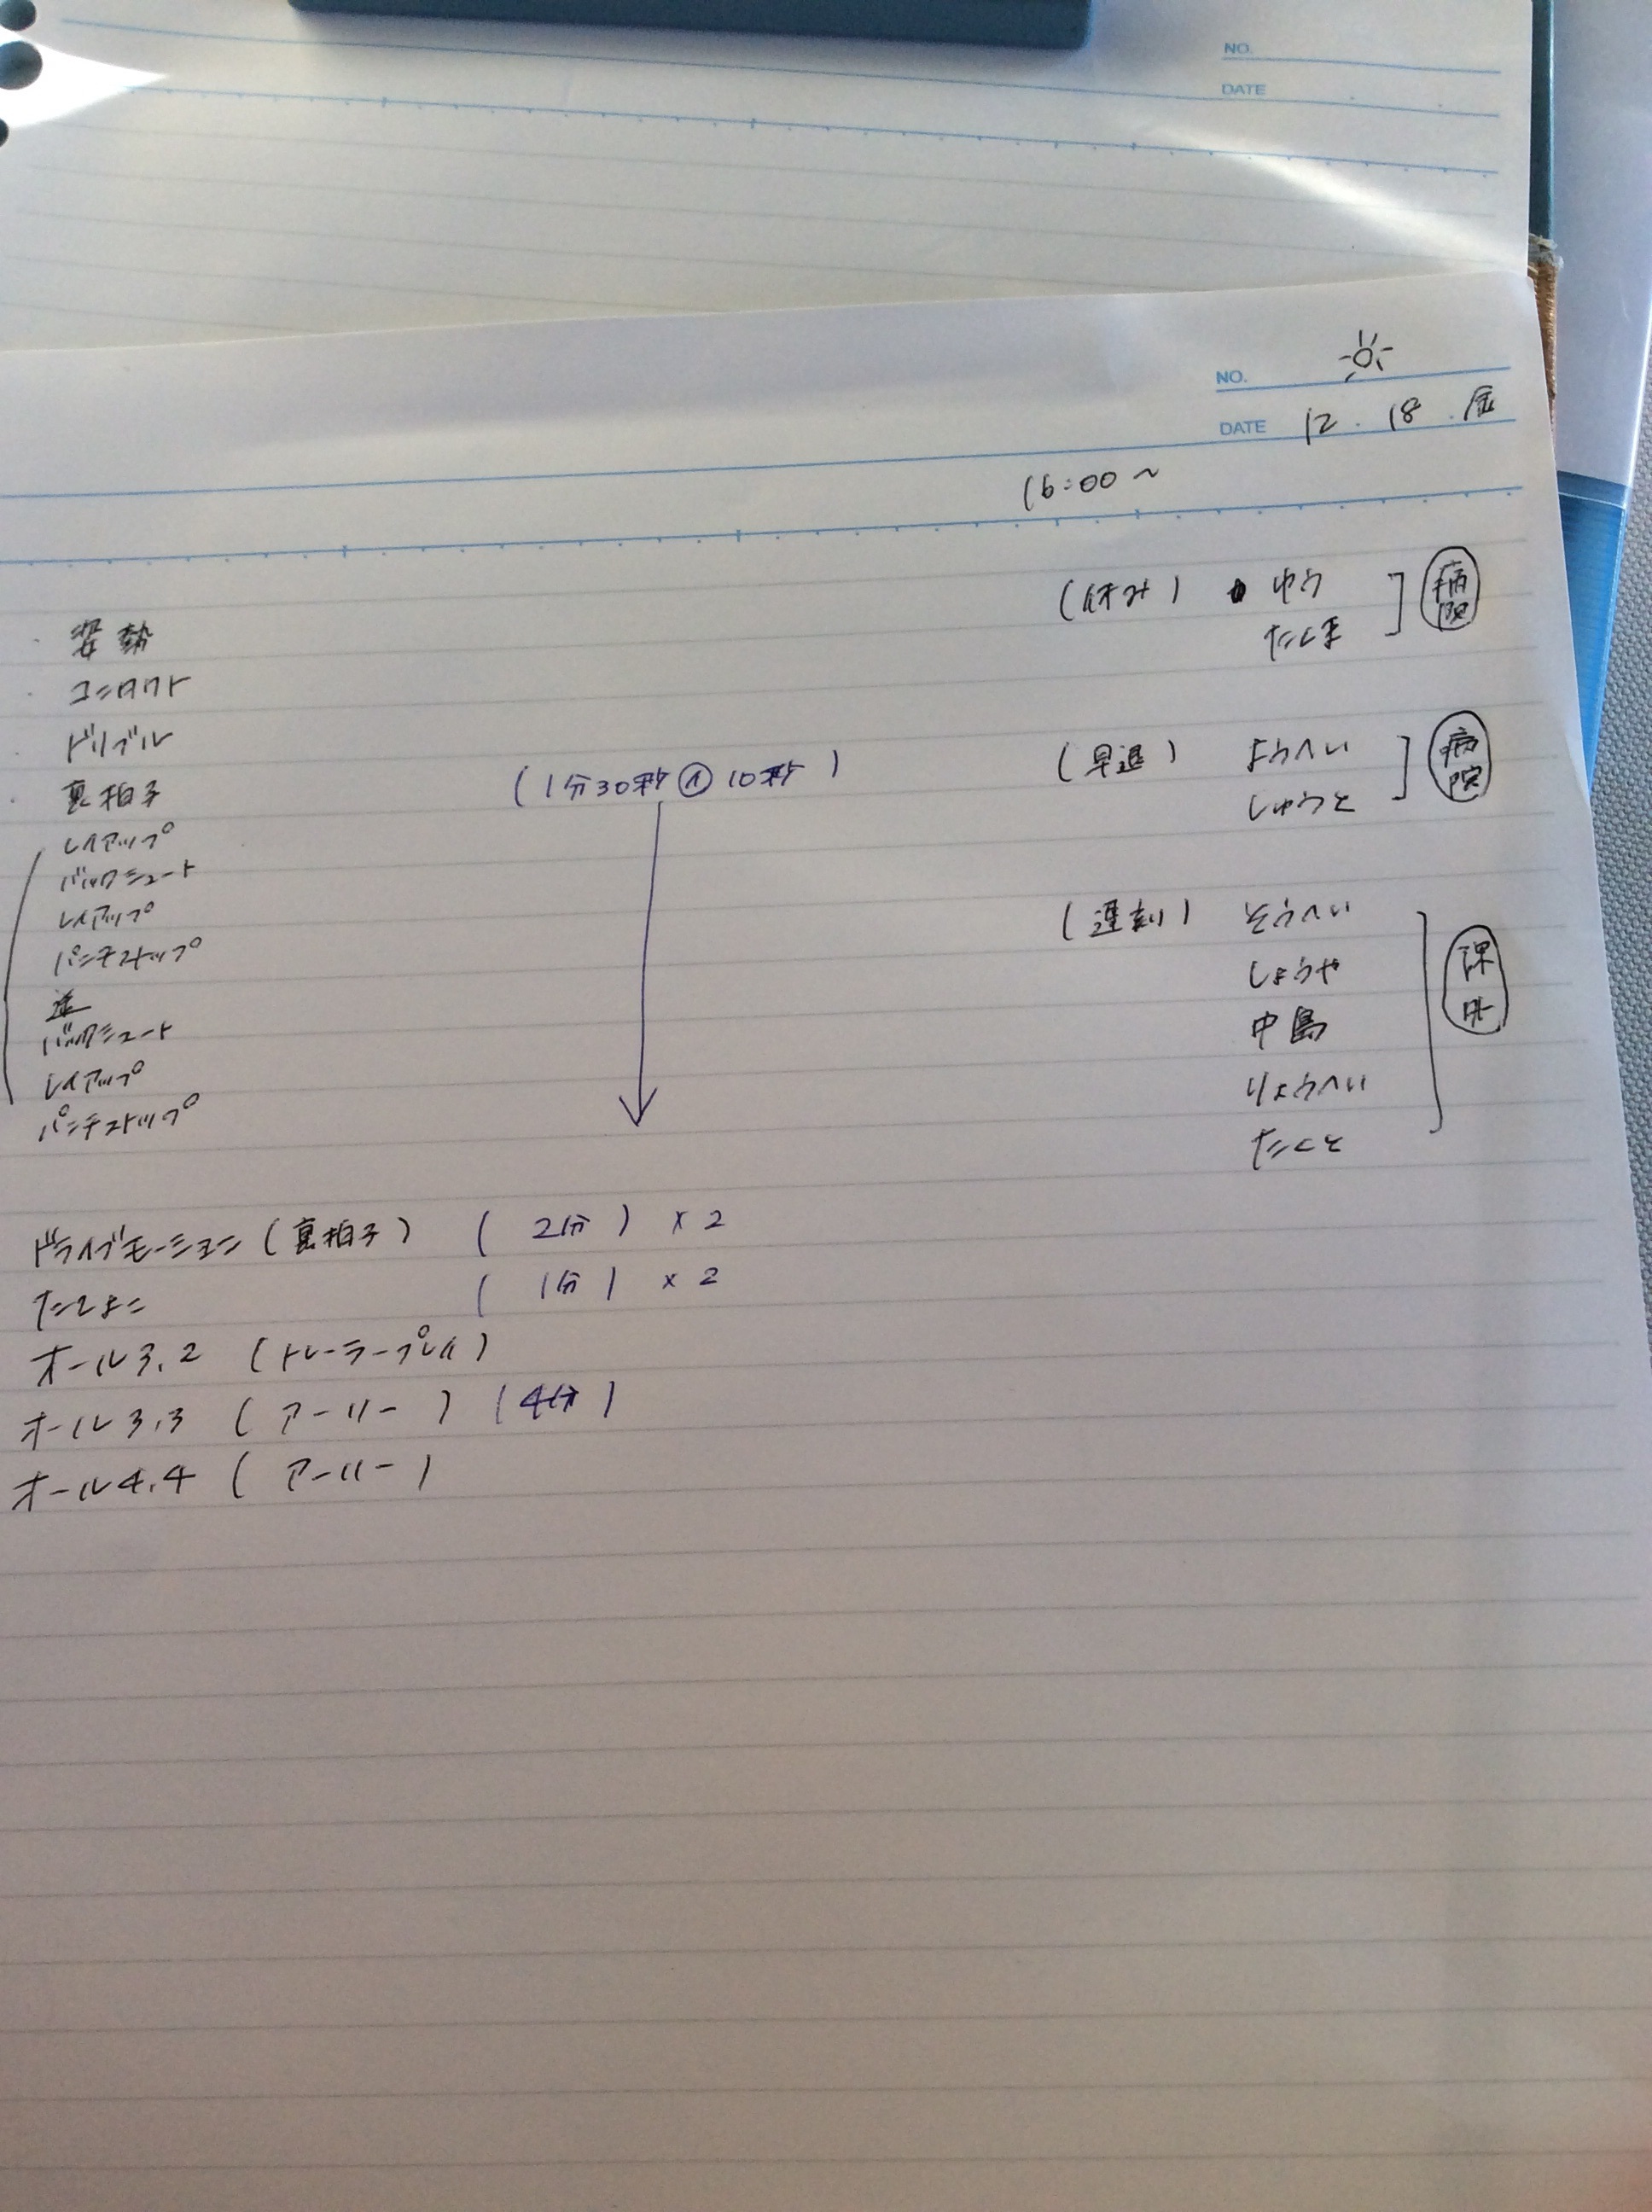 NO.
DATE
NO.
DATE 12.18.金
16:00~
(休み) ゆう
たくま
病院
・姿勢
・コンタクト
・ドリブル
・裏拍子
(1分30秒 10秒)
レイアップ
バックシュート
レイアップ
パンチストップ
逆
バックシュート
レイアップ
パンチストップ
(早退) ようへい
しゅうと
病院
(遅刻) そうへい
しょうや
中島
りょうへい
たくと
課外
ドライブモーション(裏拍子) (2分)×2
たてよこ (1分)×2
オール3.2 (トレーラープレイ)
オール3.3 (アーリー) (4分)
オール4.4 (アーリー)